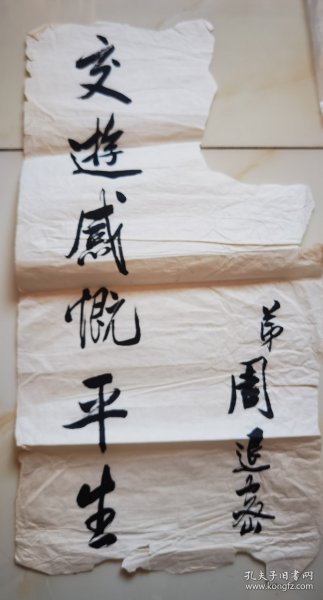 弟周退密
交遊感慨平生
孔夫子旧书网
www.kongfz.com